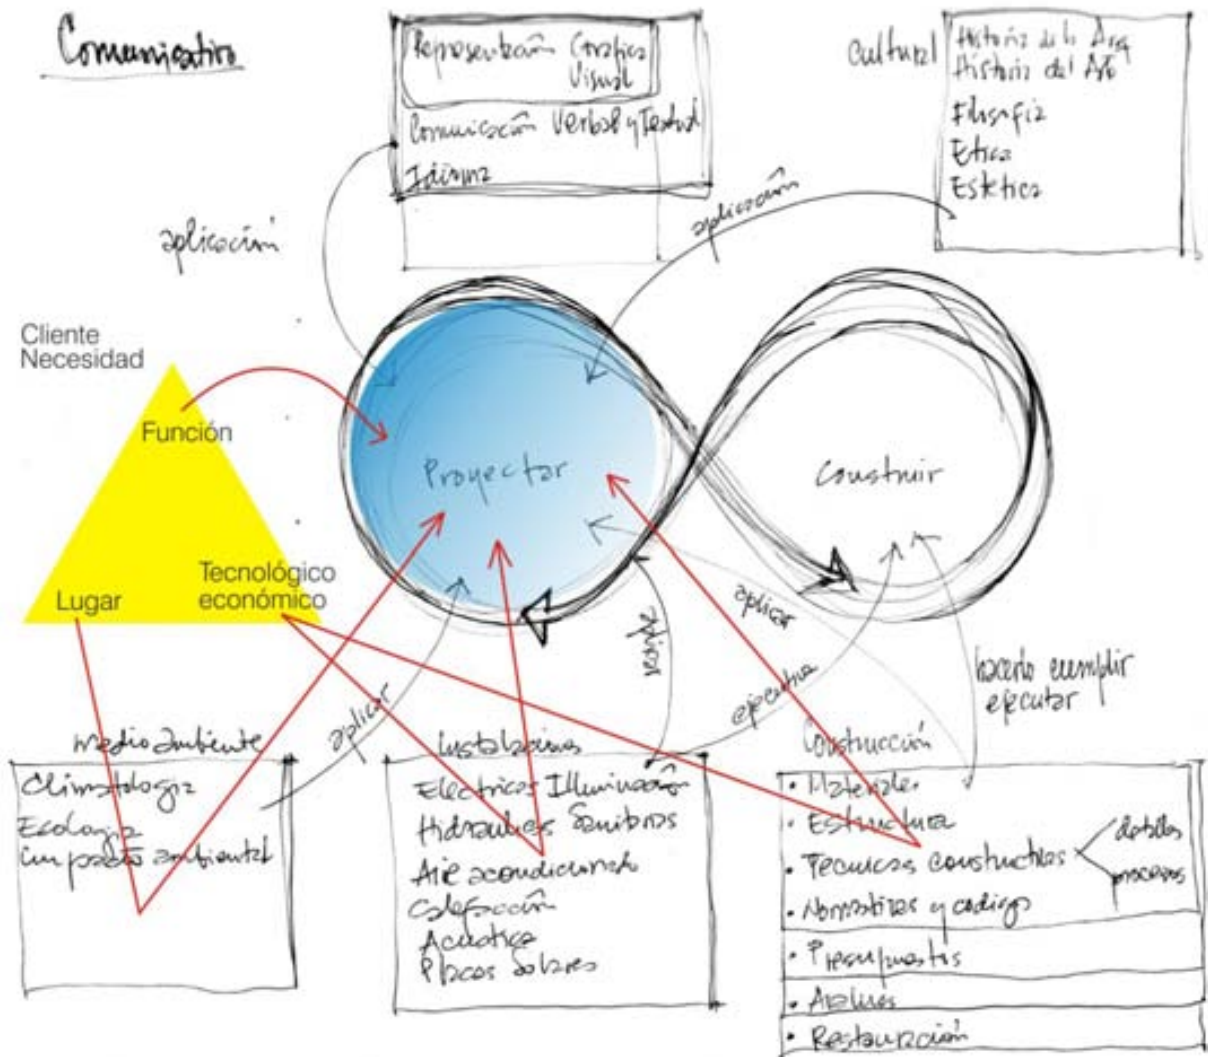 Comunicativo
Representación Gráfica
Visual
Comunicación Verbal y Textual
Idioma
Cultural
Historia de la Arq
Historia del Arte
Filosofía
Etica
Estética
aplicación
aplicación
Cliente
Necesidad
Función
Lugar
Tecnológico
económico
Proyectar
Construir
aplicar
aplicar
aplicar
ejecutar
hacerlo cumplir
ejecutar
Medio ambiente
Climatología
Ecología
impacto ambiental
Instalaciones
Electricas Illuminación
Hidraulicas Sanitarias
Aire acondicionado
Calefacción
Acustica
Placas Solares
Construcción
• Materiales
• Estructura
• Tecnicas constructivas
detalles
procesos
• Normativas y codigo
• Presupuestos
•
• Restauración